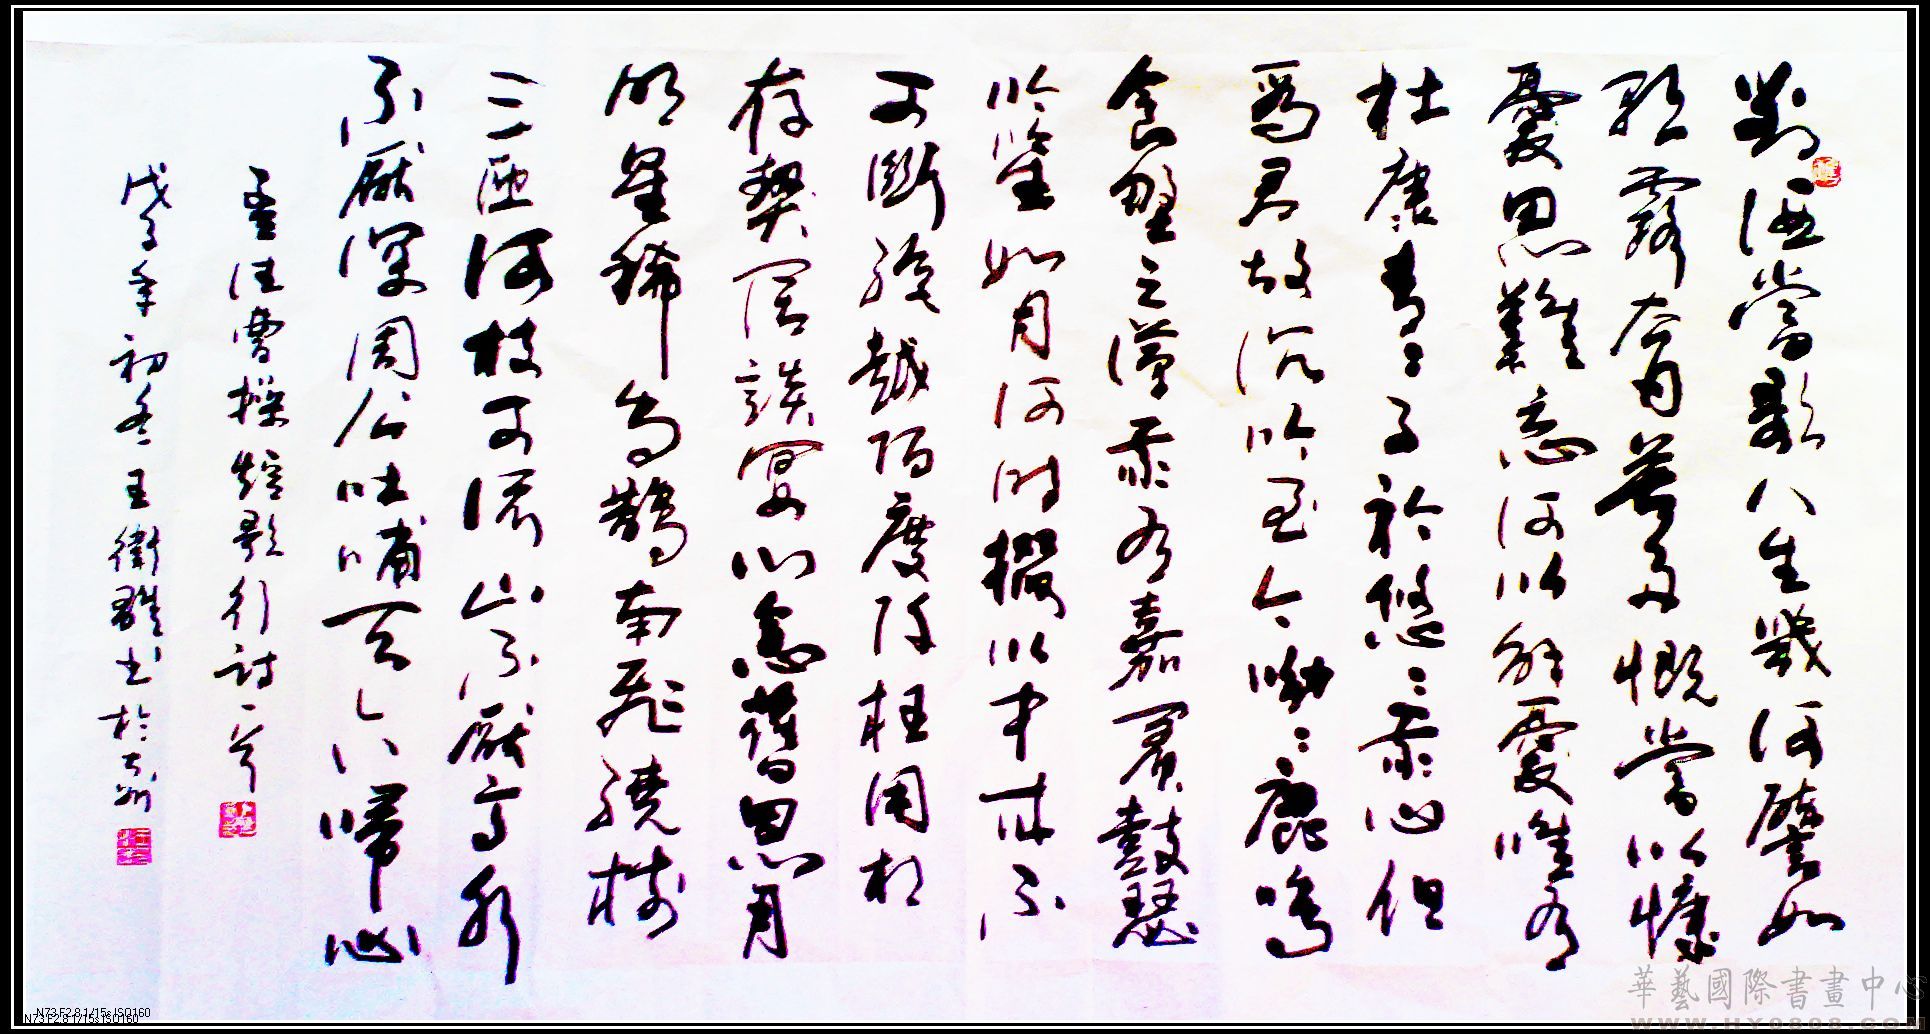 對酒當歌人生幾何譬如
朝露去日苦多慨當以慷
憂思難忘何以解憂唯有
杜康青〻子衿悠〻我心但
為君故沉吟至今呦〻鹿鳴
食野之蘋我有嘉賓鼓瑟
吹笙如月何時掇以中來不
可斷絕越陌度阡枉用相
存契闊談宴心念舊恩月
明星稀烏鵲南飛繞樹
三匝何枝可依山不厭高水
不厭深周公吐哺天下歸心
孟德曹操短歌行詩一首
戊子年初冬王衛群书於
華藝國際書畫中心
WWW.HY0808.COM
N73 F2.8 1/15s ISO160
N73 F2.8 1/15s ISO160